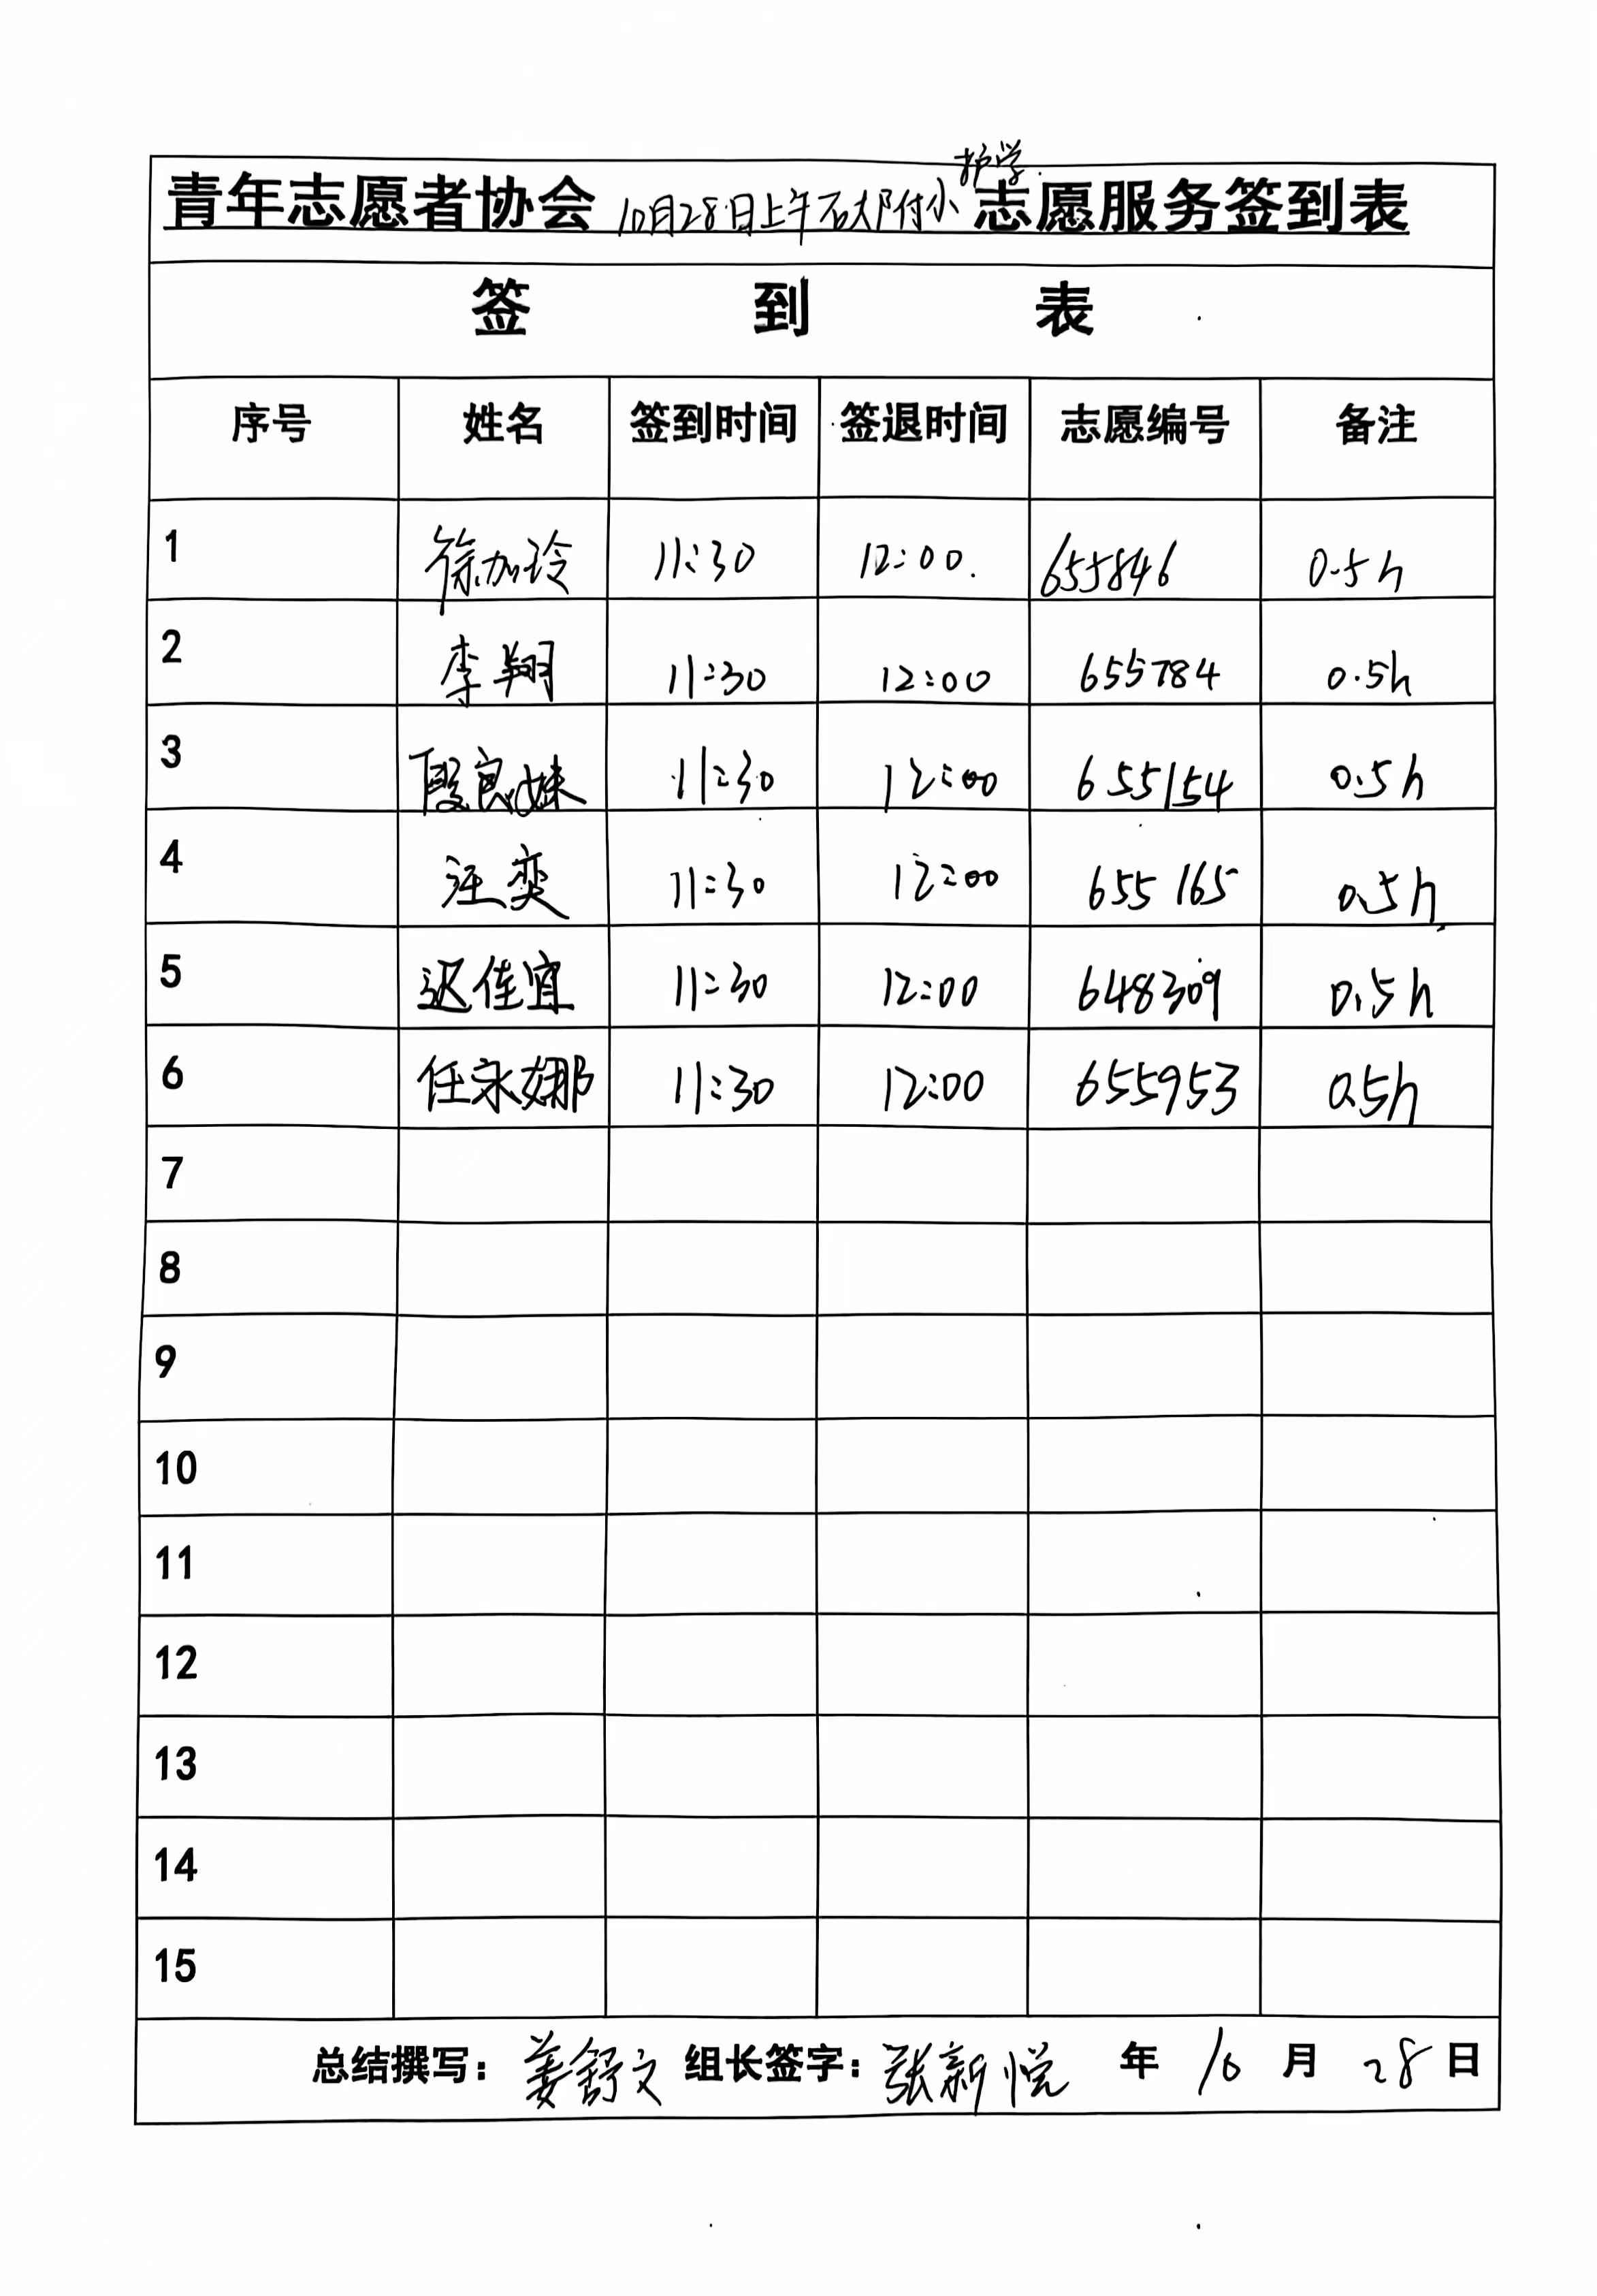 护学
青年志愿者协会10月28日上午石大附小志愿服务签到表
签 到 表
序号 姓名 签到时间 签退时间 志愿编号 备注
1 徐加玲 11:30 12:00. 655846 0.5h
2 李翔 11:30 12:00 655784 0.5h
3 殷良妹 11:30 12:00 655154 0.5h
4 汪奕 11:30 12:00 655165 0.5h
5 迟佳宜 11:30 12:00 648309 0.5h
6 任永娜 11:30 12:00 655953 0.5h
7
8
9
10
11
12
13
14
15
总结撰写：姜舒文 组长签字：张新悦 年 10 月 28 日